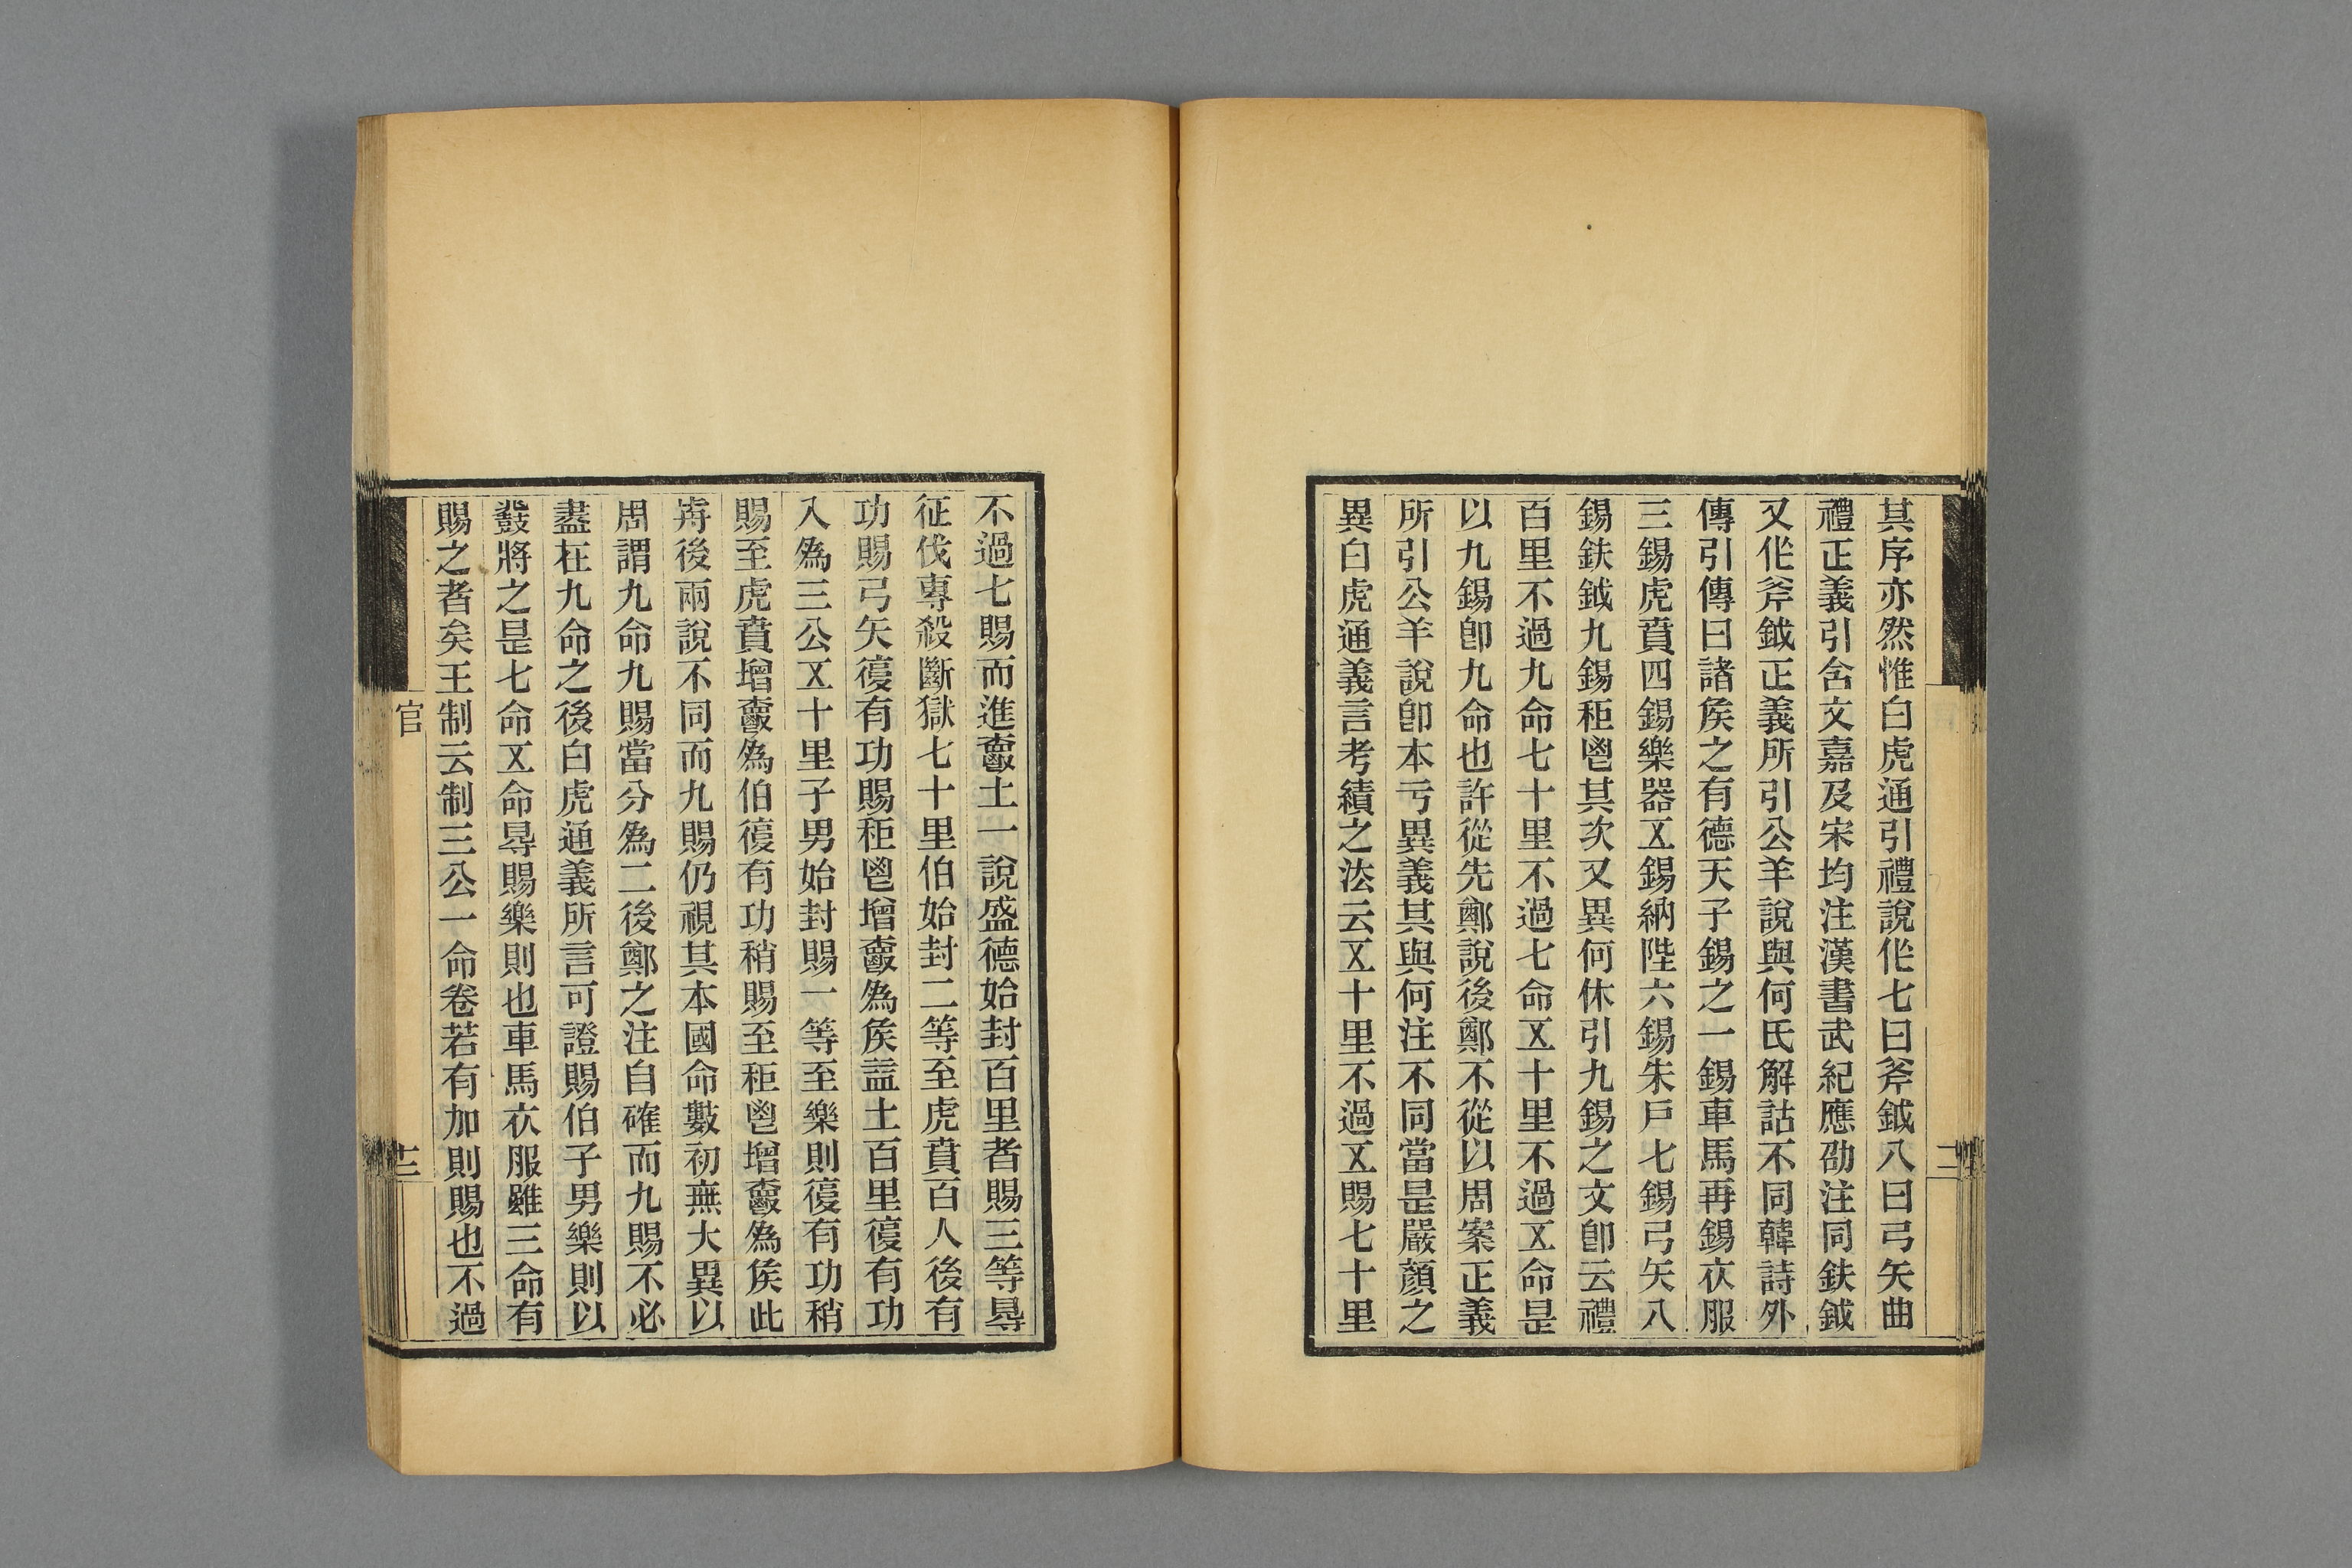 其序亦然惟白虎通引禮說作七曰斧鉞八曰弓矢曲
禮正義引含文嘉及宋均注漢書武紀應劭注同鈇鉞
又作斧鉞正義所引公羊說與何氏解詁不同韓詩外
傳引傳曰諸矦之有德天子錫之一錫車馬再錫衣服
三錫虎賁四錫樂器㐅錫納陛六錫朱戶七錫弓矢八
錫鈇鉞九錫秬鬯其次又異何休引九錫之文卽云禮
百里不過九命七十里不過七命㐅十里不過㐅命是
以九錫卽九命也許從先鄭說後鄭不從以周案正義
所引公羊說卽本亏異義其與何注不同當是嚴顏之
異白虎通義言考績之法云㐅十里不過㐅賜七十里
不過七賜而進爵土一說盛德始封百里者賜三等㝵
征伐專殺斷獄七十里伯始封二等至虎賁百人後有
功賜弓矢復有功賜秬鬯增爵為矦益土百里復有功
入為三公㐅十里子男始封賜一等至樂則復有功稍
賜至虎賁增爵為伯復有功稍賜至秬鬯增爵為矦此
歬後兩說不同而九賜仍視其本國命數初無大異以
周謂九命九賜當分為二後鄭之注自確而九賜不必
盡在九命之後白虎通義所言可證賜伯子男樂則以
鼗將之是七命㐅命㝵賜樂則也車馬衣服雖三命有
賜之者矣王制云制三公一命卷若有加則賜也不過
官
十二